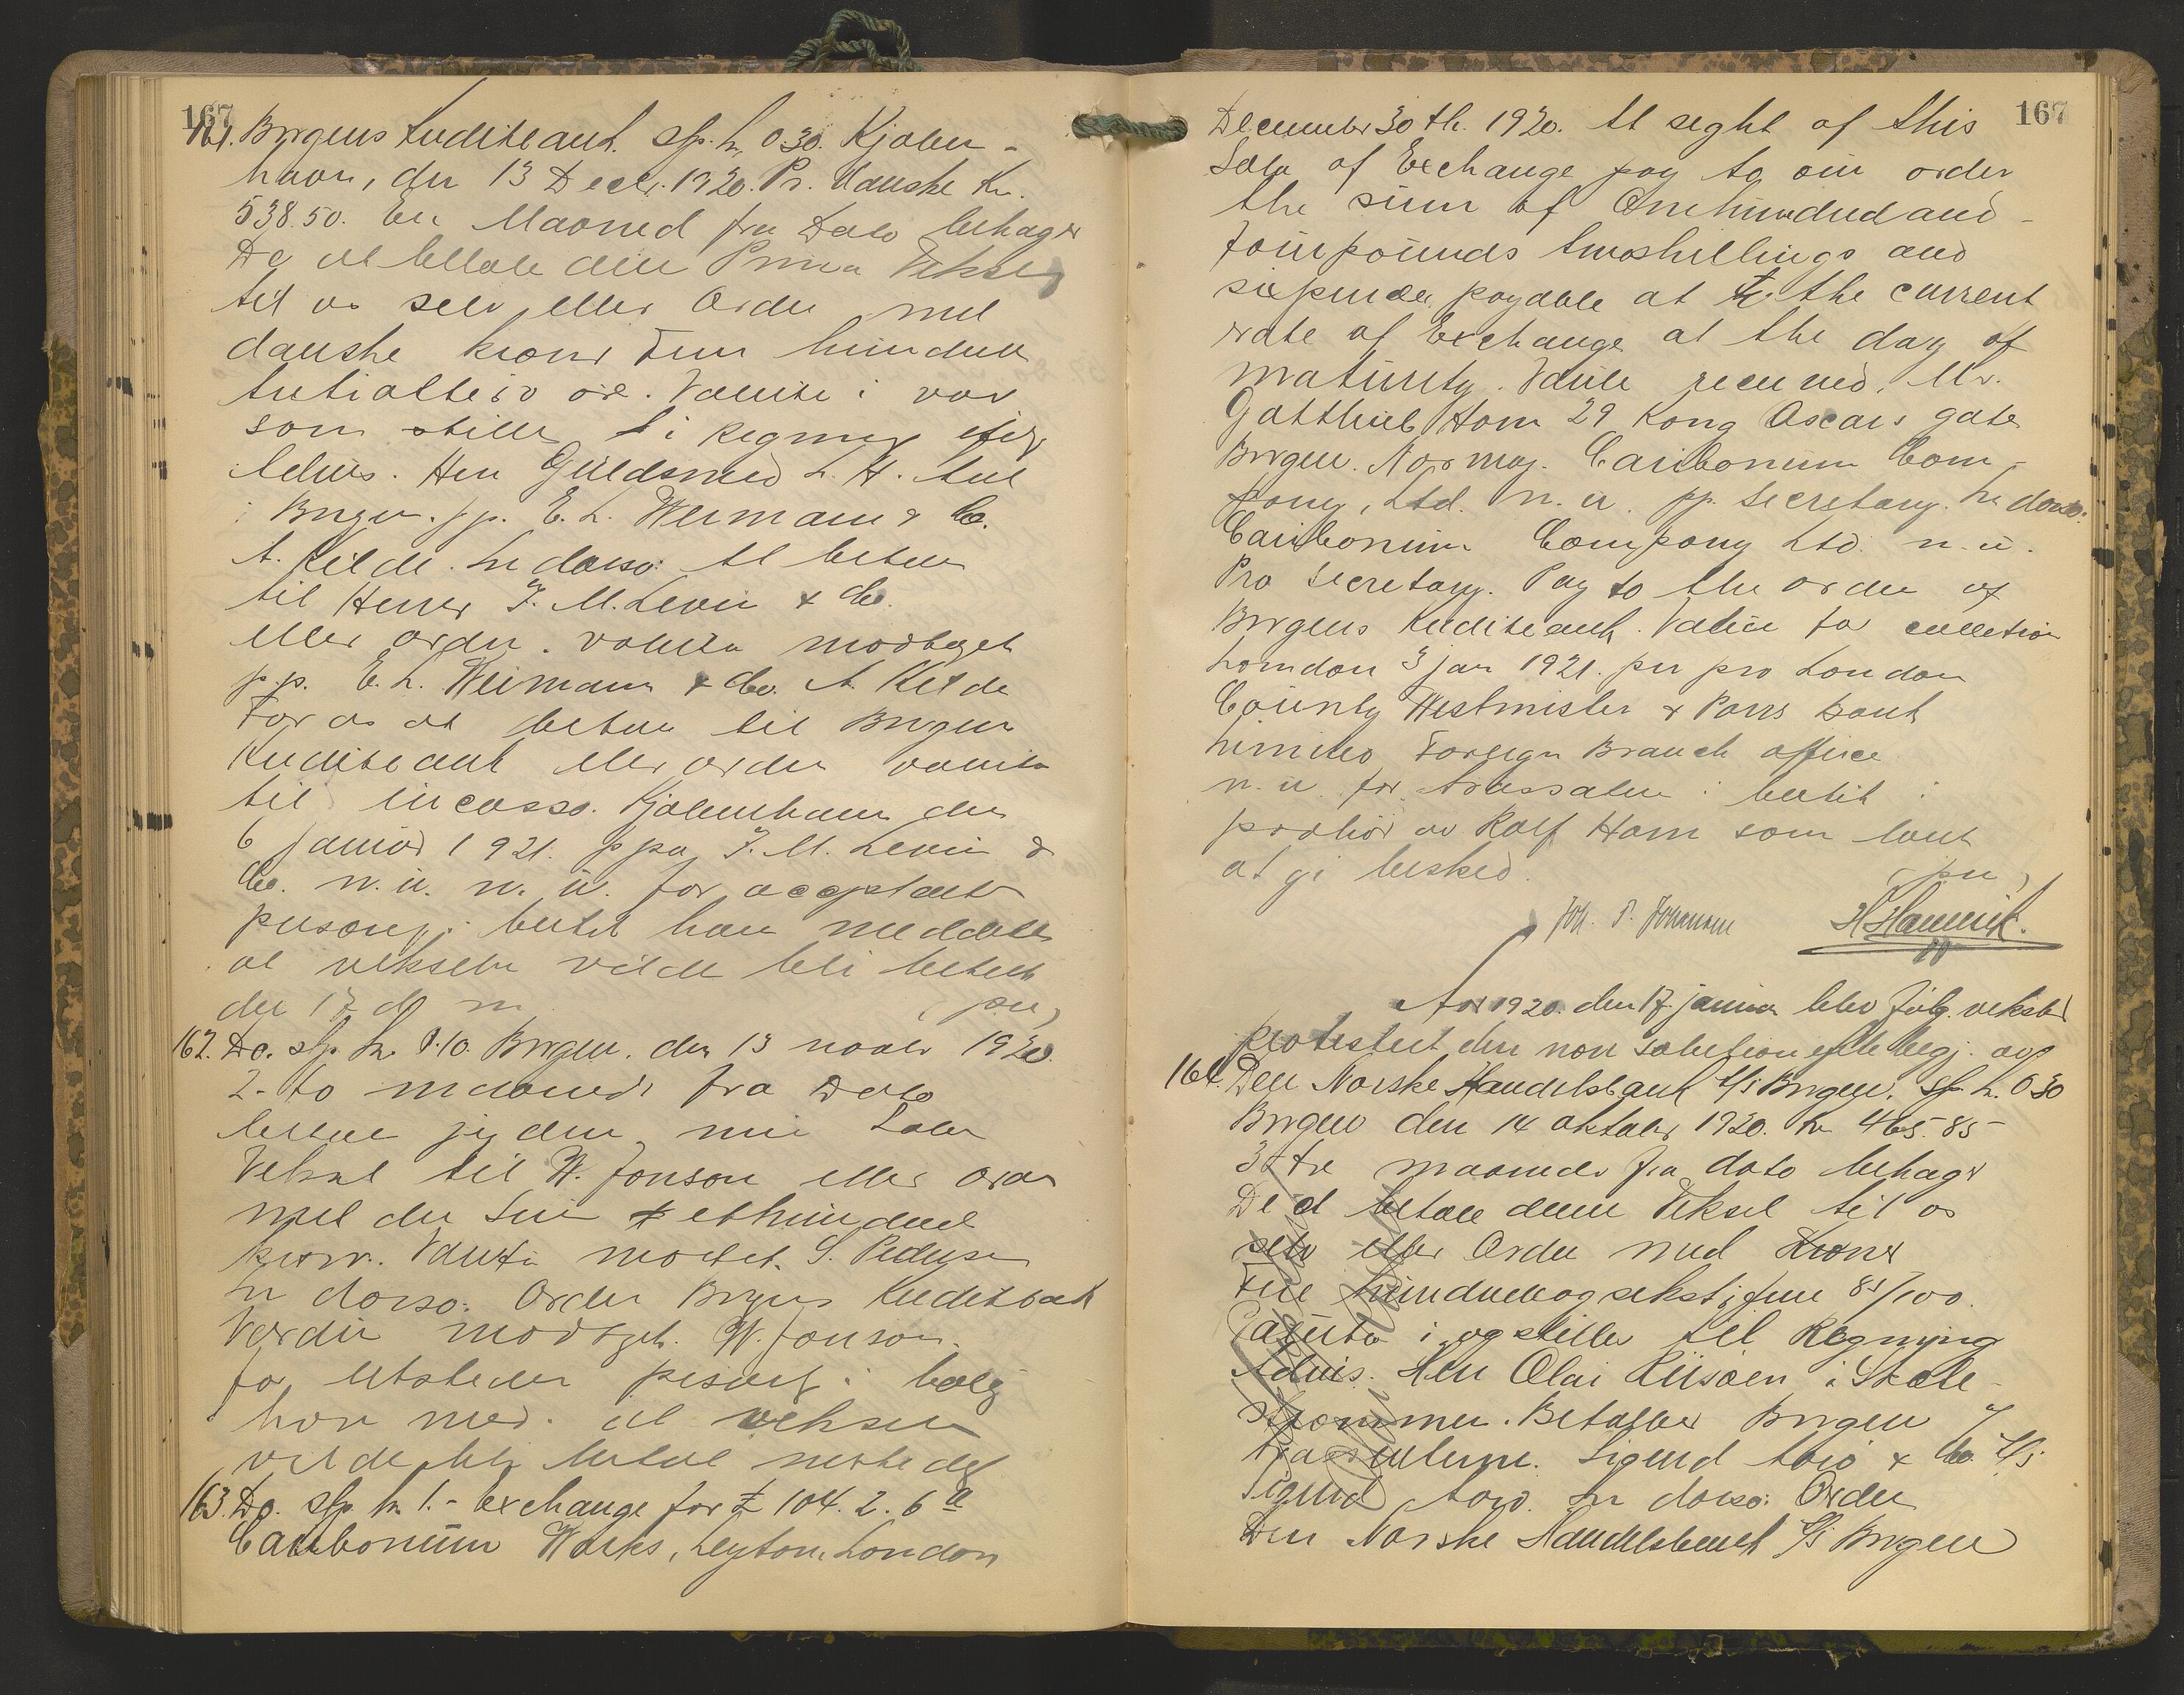 167
161. Bergens Kreditbank. Stp. Kr. 0.30. Kjøben-
havn, den 13 Decbr. 1920. Pr. danske Kr.
538.50. En Maaned fra Dato behager
De at betale denne Prima Veksel
til os selv eller Ordre med
danske kroner Fem hundrede
øre. Valuta i var
som stilles i Regning ifølge
Advis. Herr Guldsmed L. H.
i Bergen. pp. E. L. Weimann & Co.
A. Kilde. In dorso: At betale
til Herrer J. M. Levin & Co.
eller ordre. valuta modtaget
p.p. E. L. Weimann & Co. A. Kilde
For os at betale til Bergens
Kreditbank eller ordre valuta
til incasso. Kjøbenhavn den
6 Januar 1921. ppa J. M. Levin &
Co. n. u. n. u. for acceptanten
personlig i butik han meddelte
at vekselen vilde bli betalt
den 17 d m (pu)
162. Do. stp. Kr. 0.10. Bergen. den 13 novbr 1920.
2 - to maaneder fra Dato
betaler jeg denne min Sola
Veksel til W. Jonson eller ordre
med den Sum et hundrede
kroner. Valuta modtat. S. Pedersen
In dorso: Order Bergens Kreditbank
Værdi modtaget. W. Jonson.
for utstederen personlig i bolig
han med. at vekselen
vilde bli betalt neste dag
163. Do. stp. kr 1.- Exchange for £ 104. 2. 6 d
Caribonum Works, Leyton, London
167
December 30 th. 1920. At sight of this
Sola of Exchange pay to our order
the sum of Onehundred and-
fourpounds twoshillings and
sixpence, payable at the current
rate of Exchange at the day of
maturity. Value received. Mr.
Gottlieb Hom 29 Kong Oscars gate
Bergen. Norway. Caribonum Com-
pany, Ltd. n. u. pp. Secretary. In dorso:
Caribonum Company Ltd. n. u.
Pro Secretary. Pay to the order of
Bergens Kreditbank. Value for collection
London 3 jan 1921. per pro London
County Westminster & Parrs Bank
Limited Foreign Branch office
n. u. for trassaten i butik i
prokur av Rolf Hom som lovet
at gi besked. (pu)
Joh. P. Johannesen
Aar 1920. den 17. januar blev følg. veksel
protestert den non solution efter begj. av
164. Den Norske Handelsbank A/S Bergen. Stp. Kr. 0 30
Bergen den 14 oktober 1920. Kr 465.85
3 tre maaneder fra dato behager
De at betale denne Veksel til os
selv eller Ordre med Kroner
Fire hundrede og sekstifem 85/100.
Valuta i og stilles til Regning
Advis. Herr Olai Riisøen i Skaale-
strømmen. Betalbar Bergen
Trassenterne. Sigurd & Co. A/S
Sigurd In dorso: Order
Den Norske Handelsbank A/S Bergen